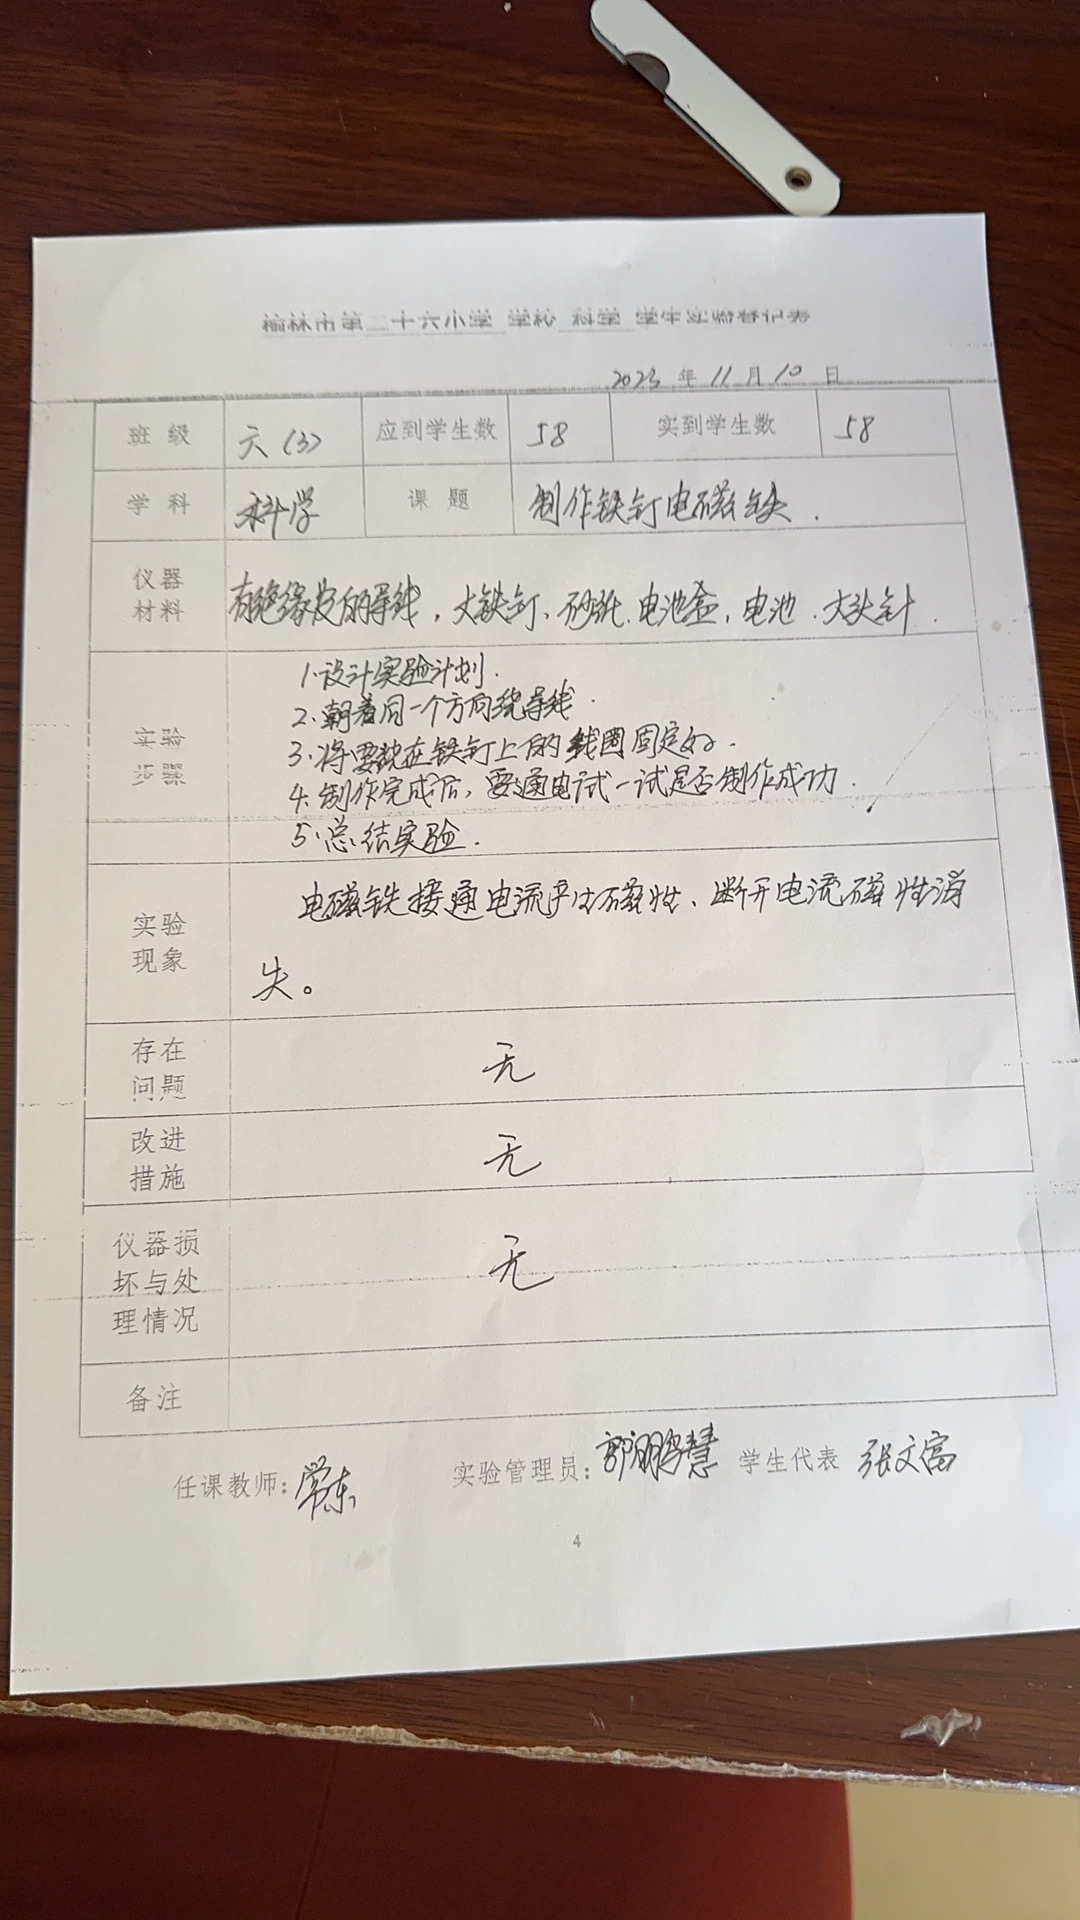 榆林市第二十六小学 学校 科学 学生实验登记表
2023 年 11 月 10 日
班 级 六(3) 应到学生数 58 实到学生数 58
学 科 科学 课 题 制作铁钉电磁铁.
仪器
材料 有绝缘皮的导线,大铁钉、砂纸、电池盒,电池、大头针.
实验
步骤
1.设计实验计划.
2.朝着同一个方向绕导线.
3.将要绕在铁钉上的线圈固定好.
4.制作完成后,要通电试一试是否制作成功.
5.总结实验.
实验
现象
电磁铁接通电流产生磁性、断开电流磁性消
失。
存在
问题 无
改进
措施 无
仪器损
坏与处
理情况 无
备注
任课教师: 实验管理员: 学生代表 张文富
4